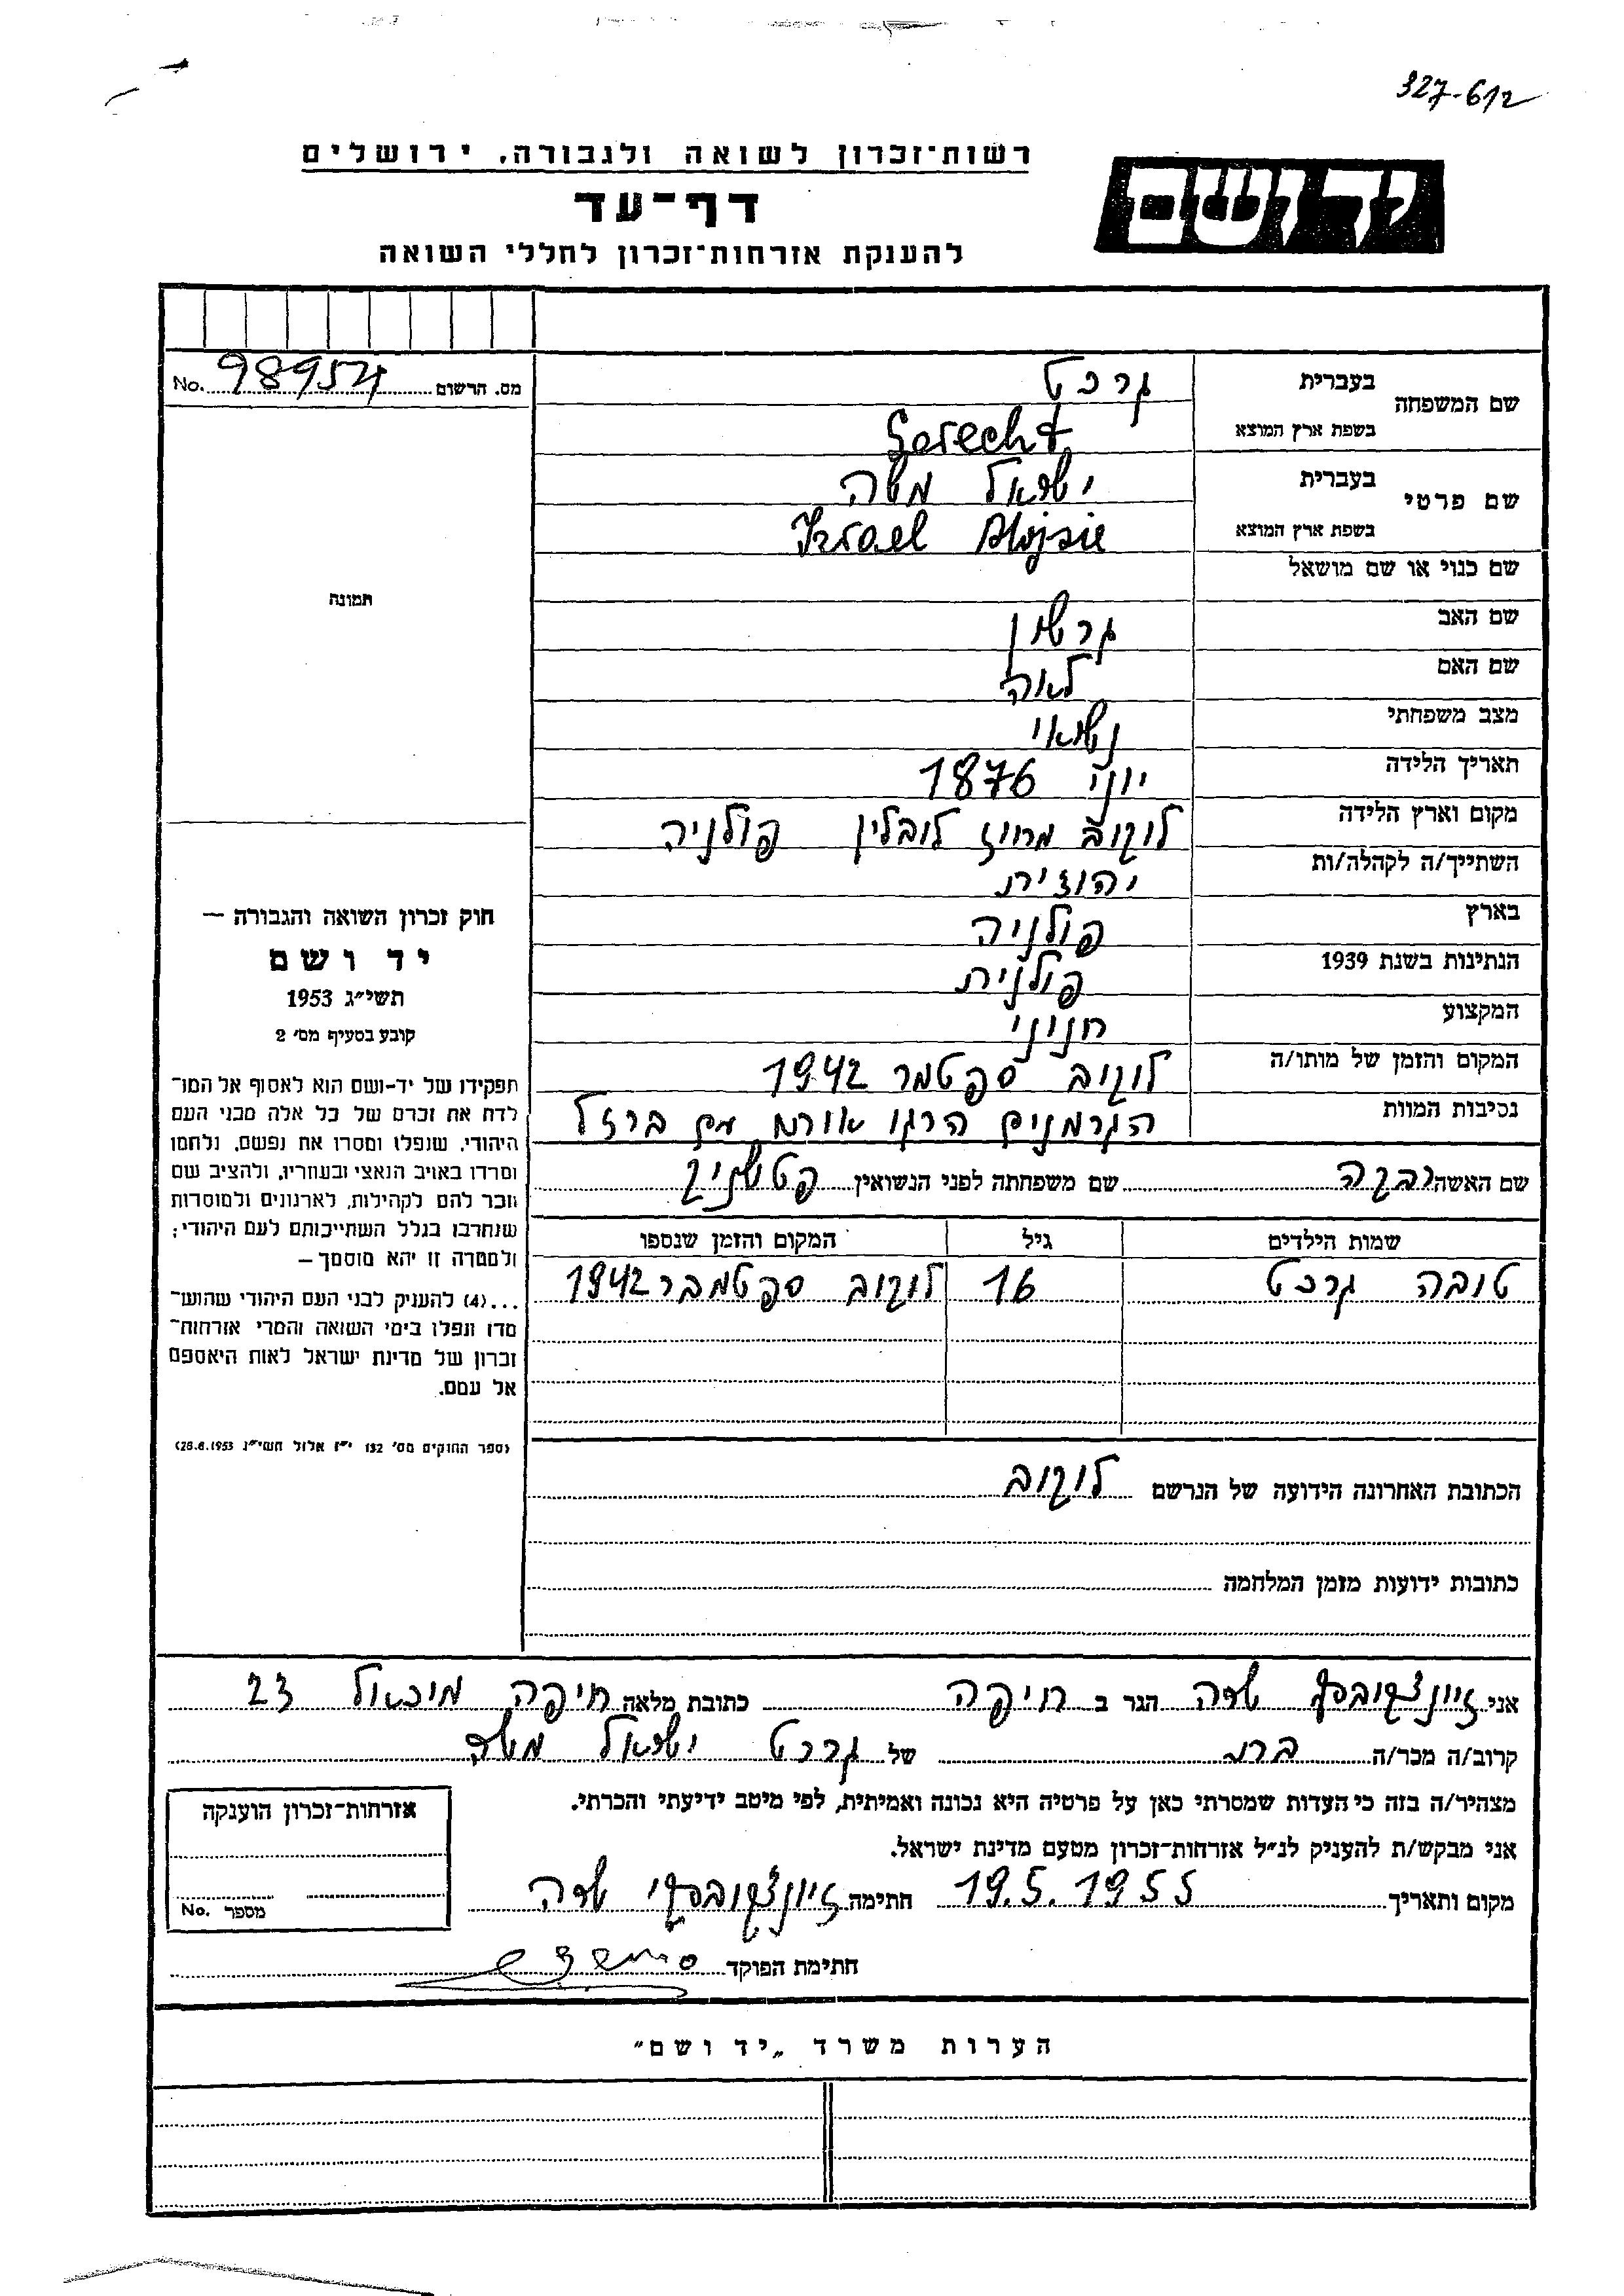 327-612
יד ושם
רשות־זכרון לשואה ולגבורה, ירושלים
דף־עד
להענקת אזרחות־זכרון לחללי השואה
מס. הרשום 98954 No.
שם המשפחה בעברית גרכט
בשפת ארץ המוצא Gerecht
שם פרטי בעברית ישראל משה
בשפת ארץ המוצא Izrael Mojsie
שם כנוי או שם מושאל
שם האב גרשון
שם האם לאה
מצב משפחתי נשואי
תאריך הלידה יוני 1876
מקום וארץ הלידה לוקוב מחוז לובלין פולניה
השתייך/ה לקהלה/ות יהודית
בארץ פולניה
הנתינות בשנת 1939 פולנית
המקצוע חנוני
המקום והזמן של מותו/ה לוקוב ספטמר 1942
נסיבות המוות הגרמנים הרגו אותו עם ברזל
שם האשה רבקה שם משפחתה לפני הנשואין
שמות הילדים גיל המקום והזמן שנספו
טובה גרכט 16 לוקוב ספטמבר 1942
הכתובת האחרונה הידועה של הנרשם לוקוב
כתובות ידועות מזמן המלחמה
תמונה
חוק זכרון השואה והגבורה —
יד ושם
תשי״ג 1953
קובע בסעיף מס׳ 2
תפקידו של יד-ושם הוא לאסוף אל המו־
לדת את זכרם של כל אלה מבני העם
היהודי, שנפלו ומסרו את נפשם, נלחמו
ומרדו באויב הנאצי ובעוזריו, ולהציב שם
וזכר להם לקהילות, לארגונים ולמוסדות
שנחרבו בגלל השתייכותם לעם היהודי;
ולמטרה זו יהא מוסמך —
...(4) להעניק לבני העם היהודי שהוש־
מדו ונפלו בימי השואה והמרי אזרחות־
זכרון של מדינת ישראל לאות היאספם
אל עמם.
(ספר החוקים מס׳ 132 י״ז אלול תשי״ג 28.8.1953)
אני שרה הגר ב חיפה כתובת מלאה חיפה מיכאל 23
קרוב/ה מכר/ה בת של גרכט ישראל משה
מצהיר/ה בזה כי העדות שמסרתי כאן על פרטיה היא נכונה ואמיתית, לפי מיטב ידיעתי והכרתי.
אני מבקש/ת להעניק לנ״ל אזרחות־זכרון מטעם מדינת ישראל.
מקום ותאריך 19.5.1955 חתימה שרה
חתימת הפוקד
אזרחות־זכרון הוענקה
מספר No.
הערות משרד „יד ושם״